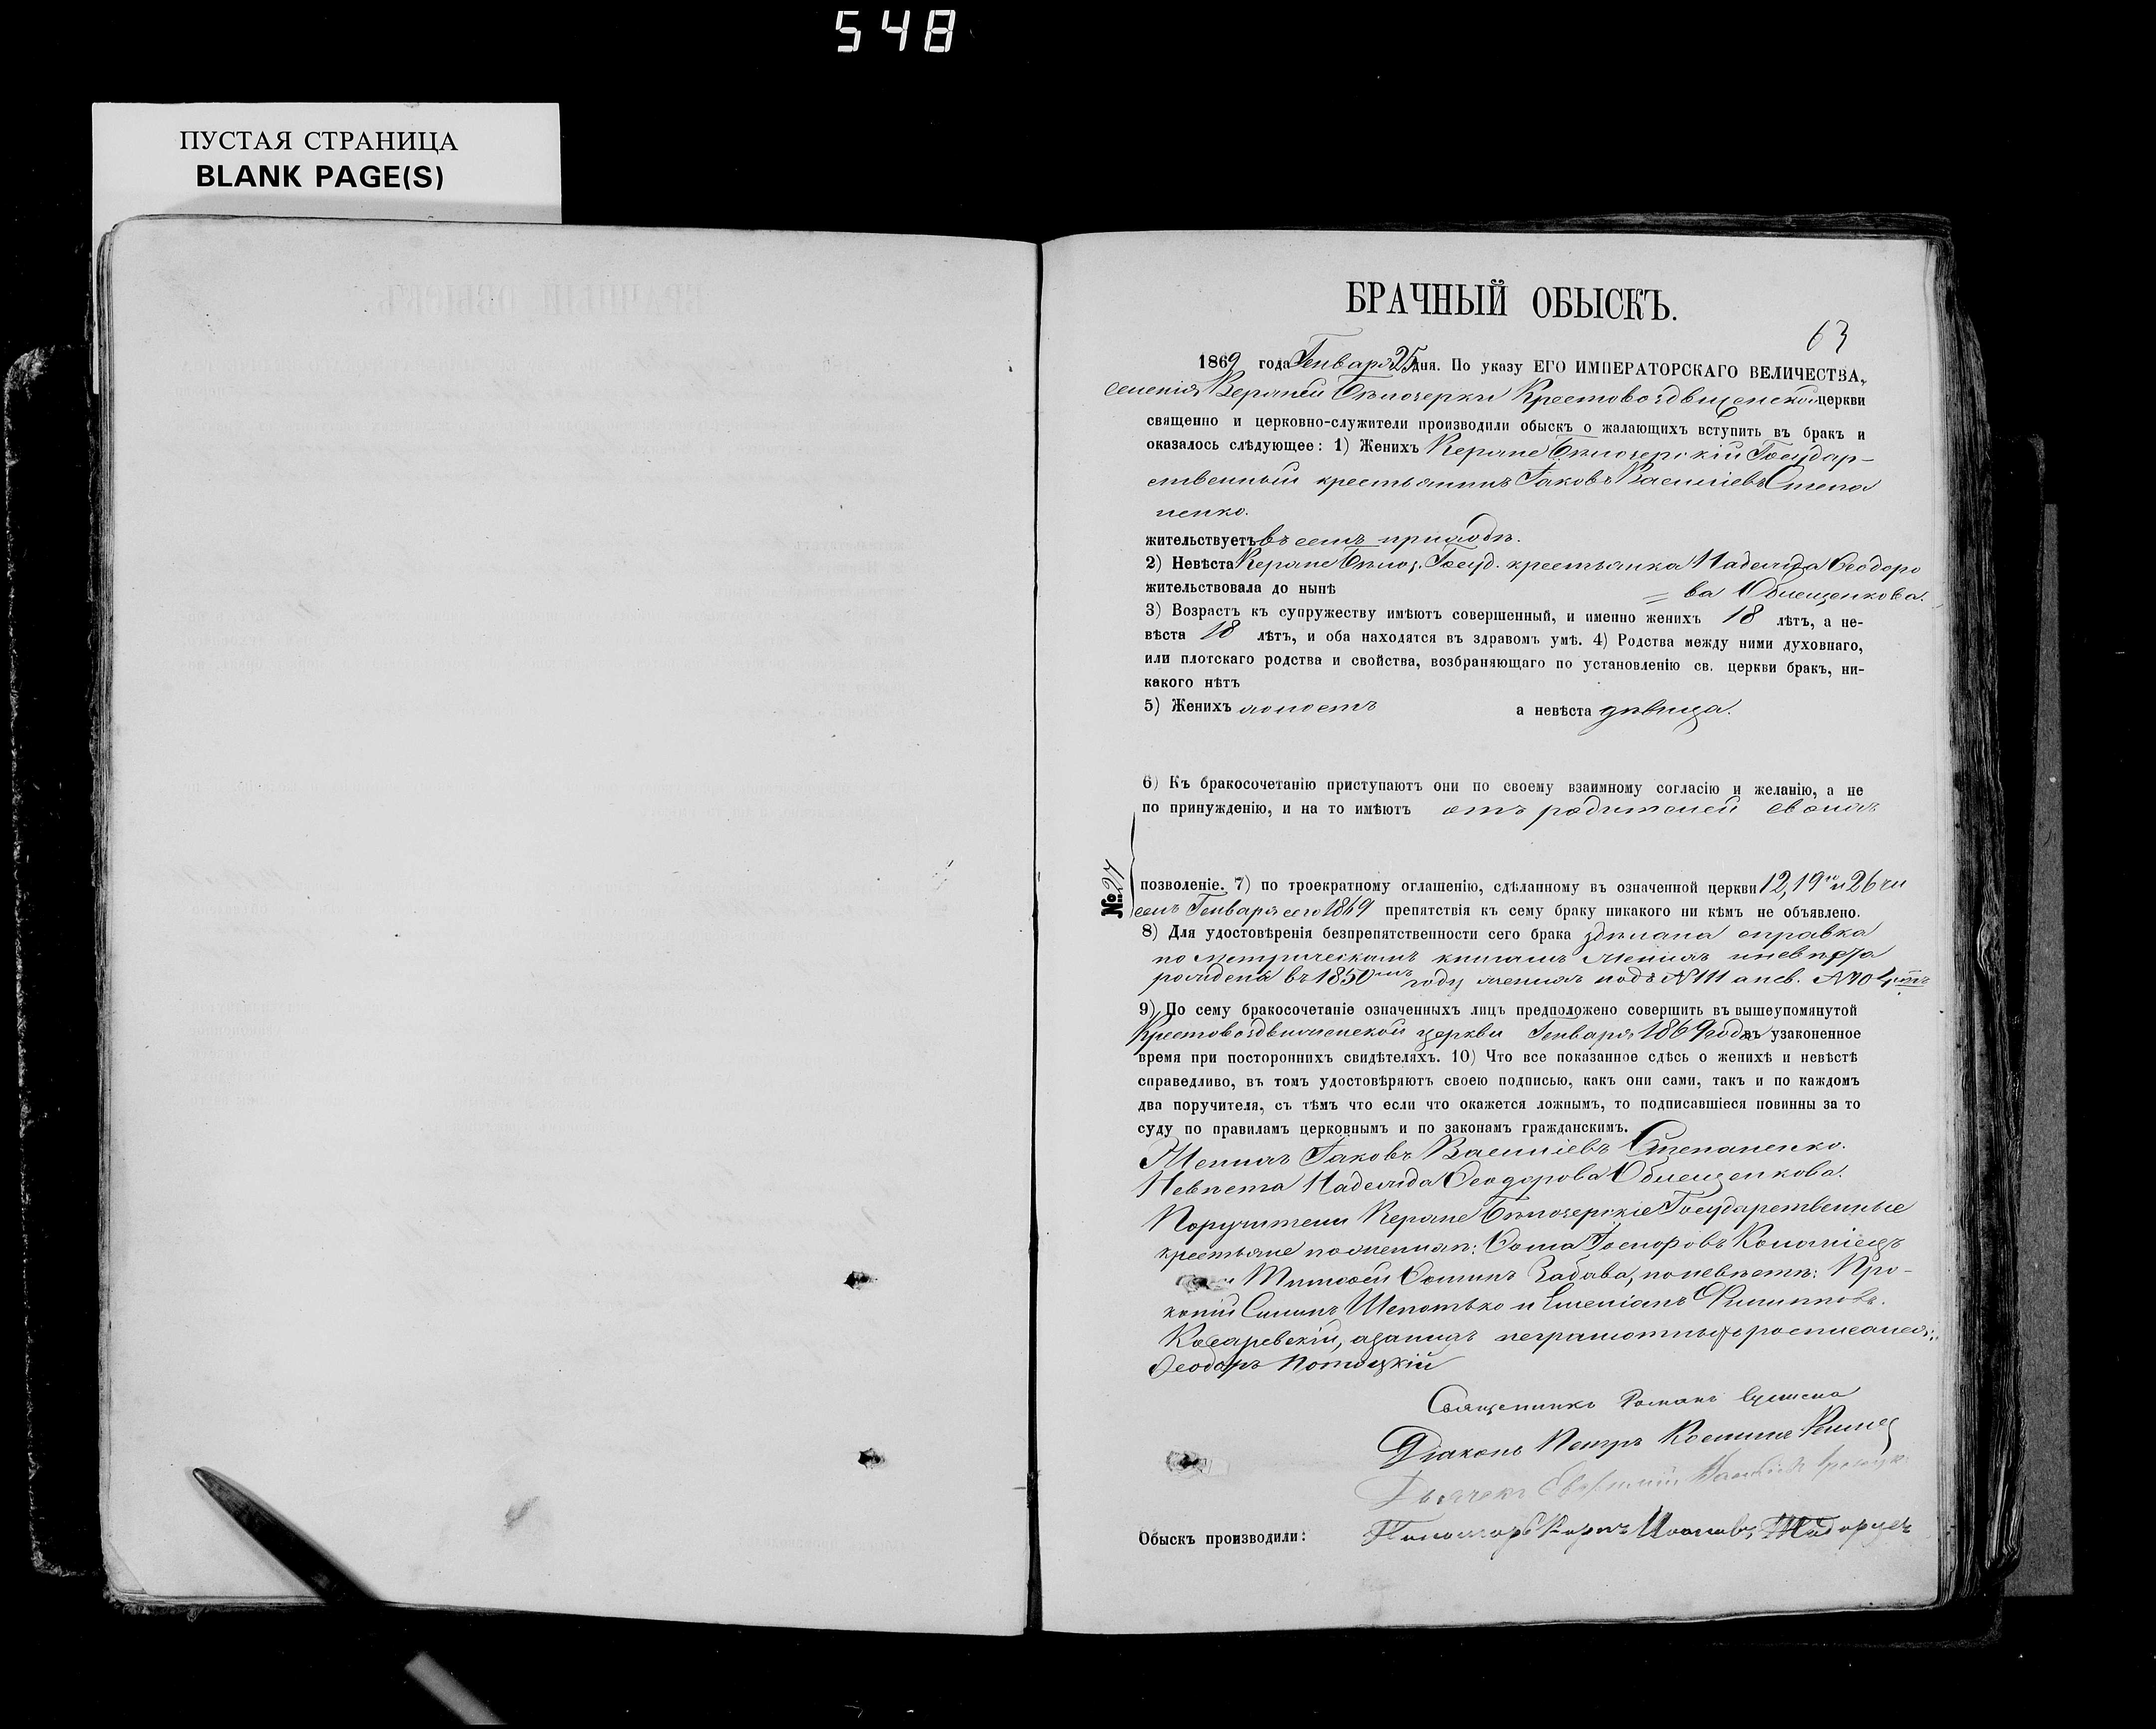 548
ПУСТАЯ СТРАНИЦА
BLANK PAGE(S)
БРАЧНЫЙ ОБЫСКЪ.
63
1869 года Генваря 25 дня. По указу ЕГО ИМПЕРАТОРСКАГО ВЕЛИЧЕСТВА,
селенія Верхней Бѣлозерки Крестовоздвиженской церкви
священно и церковно-служители производили обыскъ о жалающихъ вступить въ бракъ и
оказалось слѣдующее: 1) Женихъ Верхне Бѣлозерскій Государ-
ственный крестьянинъ Іаковъ Василіевъ Степа
ненко.
жительствуетъ въ семъ приходѣ.
2) Невѣста Верхне Бѣлоз. Госуд. крестьянка Надежда Ѳеодоро
жительствовала до нынѣ = ва Облещенкова.
3) Возрастъ къ супружеству имѣютъ совершенный, и именно женихъ 18 лѣтъ, а не-
вѣста 18 лѣтъ, и оба находятся въ здравомъ умѣ. 4) Родства между ними духовнаго,
или плотскаго родства и свойства, возбраняющаго по установленію св. церкви бракъ, ни-
какого нѣтъ
5) Женихъ холостъ а невѣста дѣвица.
6) Къ бракосочетанію приступаютъ они по своему взаимному согласію и желанію, а не
по принужденію, и на то имѣютъ отъ родителей своихъ
№ 27
позволеніе. 7) по троекратному оглашенію, сдѣланному въ означенной церкви 12, 19 и 26 чи
селъ Генваря сего 1869 препятствія къ сему браку никакого ни кѣмъ не объявлено.
8) Для удостовѣренія безпрепятственности сего брака здѣлана справка
по метрическимъ книгамъ женихъ и невѣста
рождены въ 1850 году женихъ подъ № 111 а нев. № 104
9) По сему бракосочетаніе означенныхъ лицъ предположено совершить въ вышеупомянутой
Крестовоздвиженской церкви Генваря 1869 года въ узаконенное
время при постороннихъ свидѣтеляхъ. 10) Что все показанное сдѣсь о женихѣ и невѣстѣ
справедливо, въ томъ удостовѣряютъ своею подписью, какъ они сами, такъ и по каждомъ
два поручителя, съ тѣмъ что если что окажется ложнымъ, то подписавшіеся повинны за то
суду по правиламъ церковнымъ и по законамъ гражданскимъ.
Женихъ Іаковъ Василіевъ Степаненко.
Невѣста Надежда Ѳеодорова Облещенкова.
Поручители Верхне Бѣлозерскіе Государственные
крестьяне по женихѣ: Ѳома
Тимоѳей Ѳоминъ Забава, по невѣстѣ: Про-
копій Силинъ Шепотько и Емеліанъ Филипповъ.
Косаревскій, а за нихъ неграмотныхъ росписался:
Ѳеодоръ Потоцкій
Священникъ Романъ
Діаконъ Петръ
Дьячекъ Евфимій
Обыскъ производили: Пономарь Карпъ